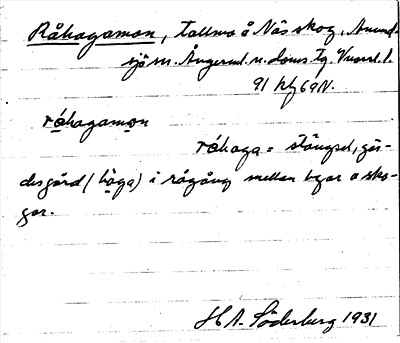 Råhagamon, tallmo å Näs skog, Anund-
sjö sn. Ångerml. n. doms tg. Vnorrl. l.
91 Hfj 69 N.
råhagamon
råhaga = stängsel, gär-
desgård (hàga) i rågång mellan byar o sko-
gar.
H A. Söderberg 1931